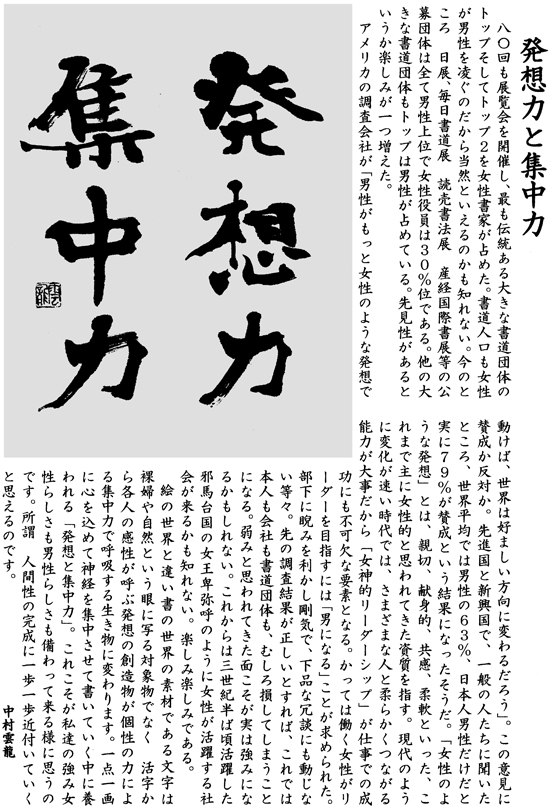 発想力と集中力
八〇回も展覧会を開催し、最も伝統ある大きな書道団体の
トップそしてトップ2を女性書家が占めた。書道人口も女性
が男性を凌ぐのだから当然といえるのかも知れない。今のと
ころ 日展、毎日書道展 読売書法展 産経国際書展等の公
募団体は全て男性上位で女性役員は30%位である。他の大
きな書道団体もトップは男性が占めている。先見性があると
いうか楽しみが一つ増えた。
アメリカの調査会社が「男性がもっと女性のような発想で
動けば、世界は好ましい方向に変わるだろう」。この意見に
賛成か反対か。先進国と新興国で、一般の人たちに聞いた
ところ、世界平均では男性の63%、日本人男性だけだと
実に79%が賛成という結果になったそうだ。「女性のよ
うな発想」とは、親切、献身的、共感、柔軟といった、こ
れまで主に女性的と思われてきた資質を指す。現代のよう
に変化が速い時代では、さまざまな人と柔らかくつながる
能力が大事だから「女神的リーダーシップ」が仕事での成
功にも不可欠な要素となる。かつては働く女性がリ
ーダーを目指すには「男になる」ことが求められた。
部下に睨みを利かし剛気で、下品な冗談にも動じな
い等々。先の調査結果が正しいとすれば、これでは
本人も会社も書道団体も、むしろ損してしまうこと
になる。弱みと思われてきた面こそが実は強みにな
るかもしれない。これからは三世紀半ば頃活躍した
邪馬台国の女王卑弥呼のように女性が活躍する社
会が来るかも知れない。楽しみ楽しみである。
絵の世界と違い書の世界の素材である文字は
裸婦や自然という眼に写る対象物でなく 活字か
ら各人の感性が呼ぶ発想の創造物が個性の力によ
る集中力で呼吸する生き物に変わります。一点一画
に心を込めて神経を集中させて書いていく中に養
われる「発想と集中力」。これこそが私達の強み女
性らしさも男性らしさも備わって来る様に思うの
です。所謂 人間性の完成に一歩一歩近付いていく
と思えるのです。
中村雲龍
発想力
集中力